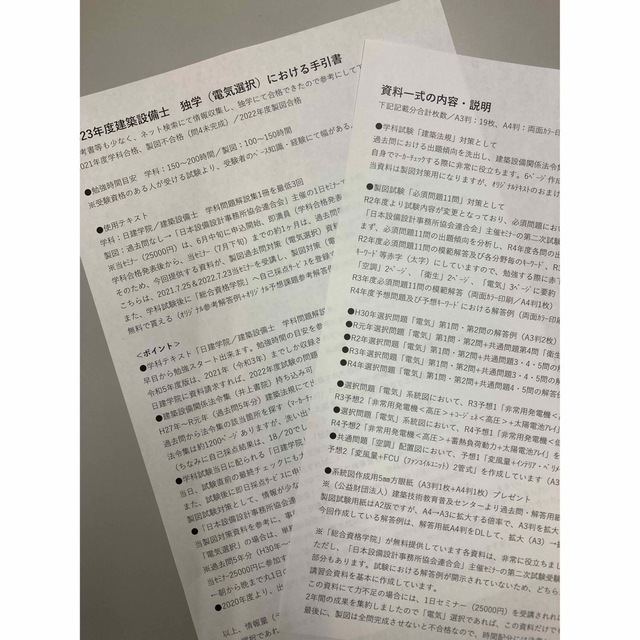 23年度建築設備士 独学（電気選択）における手引書
考書等も少なく、ネット検索にて情報収集し、独学にて合格できたので参考にして下
021年度学科合格、製図不合格（問4未完成）／2022年度製図合格
●勉強時間目安 学科：150～200時間／製図：100～150時間
※受験資格のある人が受ける試験より、受験者のﾍﾞｰｽ知識・経験にて幅がある
●使用テキスト
学科：日建学院／建築設備士 学科問題解説集1冊を最低3回
製図：過去問なし→「日本設備設計事務所協会連合会」主催の1日ｾﾐﾅｰ
※当ｾﾐﾅｰ（25000円）は、6月中旬に申込開始、即満員（学科合格発表
学科合格発表後から、当ｾﾐﾅｰ（7月下旬）までの約1ヶ月は、過去問
そのため、今回提供する資料が、製図過去問対策（電気選択）資料
こちらは、2021.7.25＆2022.7.23当ｾﾐﾅｰを受講し、製図対策（電
また、学科試験後に「総合資格学院」へ自己採点ｻｰﾋﾞｽを登録す
無料で貰える（ｵﾘｼﾞﾅﾙ参考解答例+ｵﾘｼﾞﾅﾙ予想課題参考解答例
＜ポイント＞
●学科テキスト「日建学院／建築設備士 学科問題解説
早目から勉強スタート出来ます。勉強時間の目安を参
令和5年度版は、2021年（令和3年）までしか収録さ
日建学院に資料請求すれば、2022年度試験の問題
●建築設備関係法令集（井上書院）持ち込み可
H27年～R元年（過去問5年分）建築法規にて出
過去問から法令集の該当箇所を探す（ﾏｰｶｰﾄ
法令集は約1200ﾍﾟｰｼﾞありますが、洗い出
（ちなみに自己採点結果は、18／20でし
●学科試験当日に配られる「日建学院」
当日、試験直前の最終チェックにも大
また、試験後に即日採点ｻｰﾋﾞｽに申
製図試験対策として、情報が少な
●「日本設備設計事務所協会連合会
当製図対策資料を参考に、事
「電気選択」の場合は、単
※過去問5年分（H30年～
当ｾﾐﾅｰ25000円に参加す
←朝から晩まで1日
●2020年度より、出
以上、情報量（
資料一式の内容・説明
下記記載分合計枚数／A3判：19枚、A4判：両面ｶﾗｰ印
●学科試験「建築法規」対策として
過去問における出題傾向を洗出し、建築設備関係法令集
自身でﾏｰｶｰﾁｪｯｸする際に非常に役立ちます。6ﾍﾟｰｼﾞ作
当資料は製図対策用になりますが、ｵﾘｼﾞﾅﾙﾃｷｽﾄのおま
●製図試験「必須問題11問」対策として
R2年度より試験内容が変更となっており、必須問題にお
「日本設備設計事務所協会連合会」主催ｾﾐﾅｰの第二次試
まず、必須問題11問の出題傾向を分析し、R4年度各問の出
R2年度必須問題11問の模範解答及び各分野毎のｷｰﾜｰﾄﾞ、
ｷｰﾜｰﾄﾞ等赤字（太字）にしていますので、勉強する際に赤下
「空調」2ﾍﾟｰｼﾞ、「衛生」2ﾍﾟｰｼﾞ、「電気」3ﾍﾟｰｼﾞに要約
R3年度必須問題11問の模範解答（両面ｶﾗｰ印刷／A4判1枚）
R4年度予想問題及び予想ｷｰﾜｰﾄﾞにおける解答例（両面ｶﾗｰ印
●H30年選択問題「電気」第1問・第2問の解答例（A3判2枚）
●R元年選択問題「電気」第1問・第2問+共通問題第4問「衛生
●R2年選択問題「電気」第1問・第2問+共通問題3・4・5問の解
●R3年選択問題「電気」第1問・第2問+共通問題3・4・5問の解
●R4年選択問題「電気」第1問・第2問+共通問題4・5問の解答例
●選択問題「電気」系統図において、R3予想1「非常用発電機＜高
R3予想2「非常用発電機＜高圧＞+ｺｰｼﾞｪﾈ＜高圧＞+太陽電池ｱﾚｲ」を
●選択問題「電気」系統図において、R4予想1「非常用発電機＜高圧
R4予想2「非常用発電機＜高圧＞+蓄熱負荷動力+太陽電池ｱﾚｲ」を
●共通問題「空調」配置図において、予想1「変風量+インテリア・ペリメ
予想2「変風量+FCU（ﾌｧﾝｺｲﾙﾕﾆｯﾄ）2管式」を作成しています（A3
●系統図作成用5㎜方眼紙（A3判1枚+A4判1枚）プレゼント
※（公益財団法人）建築技術教育普及センターより過去問・解答用紙
製図試験用紙はA2版ですが、A4→A3に拡大する倍率で、A3判を拡大
今回作成している解答例は、解答用紙A4判をDLして、拡大（A3）→
※「総合資格学院」が無料提供している各資料は、非常に役立ちまし
ただし、「日本設備設計事務所協会連合会」主催ｾﾐﾅｰの第二次試験受験
部分もあります。試験における解答例が開示されていないため、どちら
講習会資料を基本に作成しています。
この資料にて力不足の場合には、1日セミナー（25000円）を受講されれば
2年間の成果を集約しましたので「電気」選択であれば、この資料だけで
最後に、製図は全問完成させないと不合格なので、時間配分には